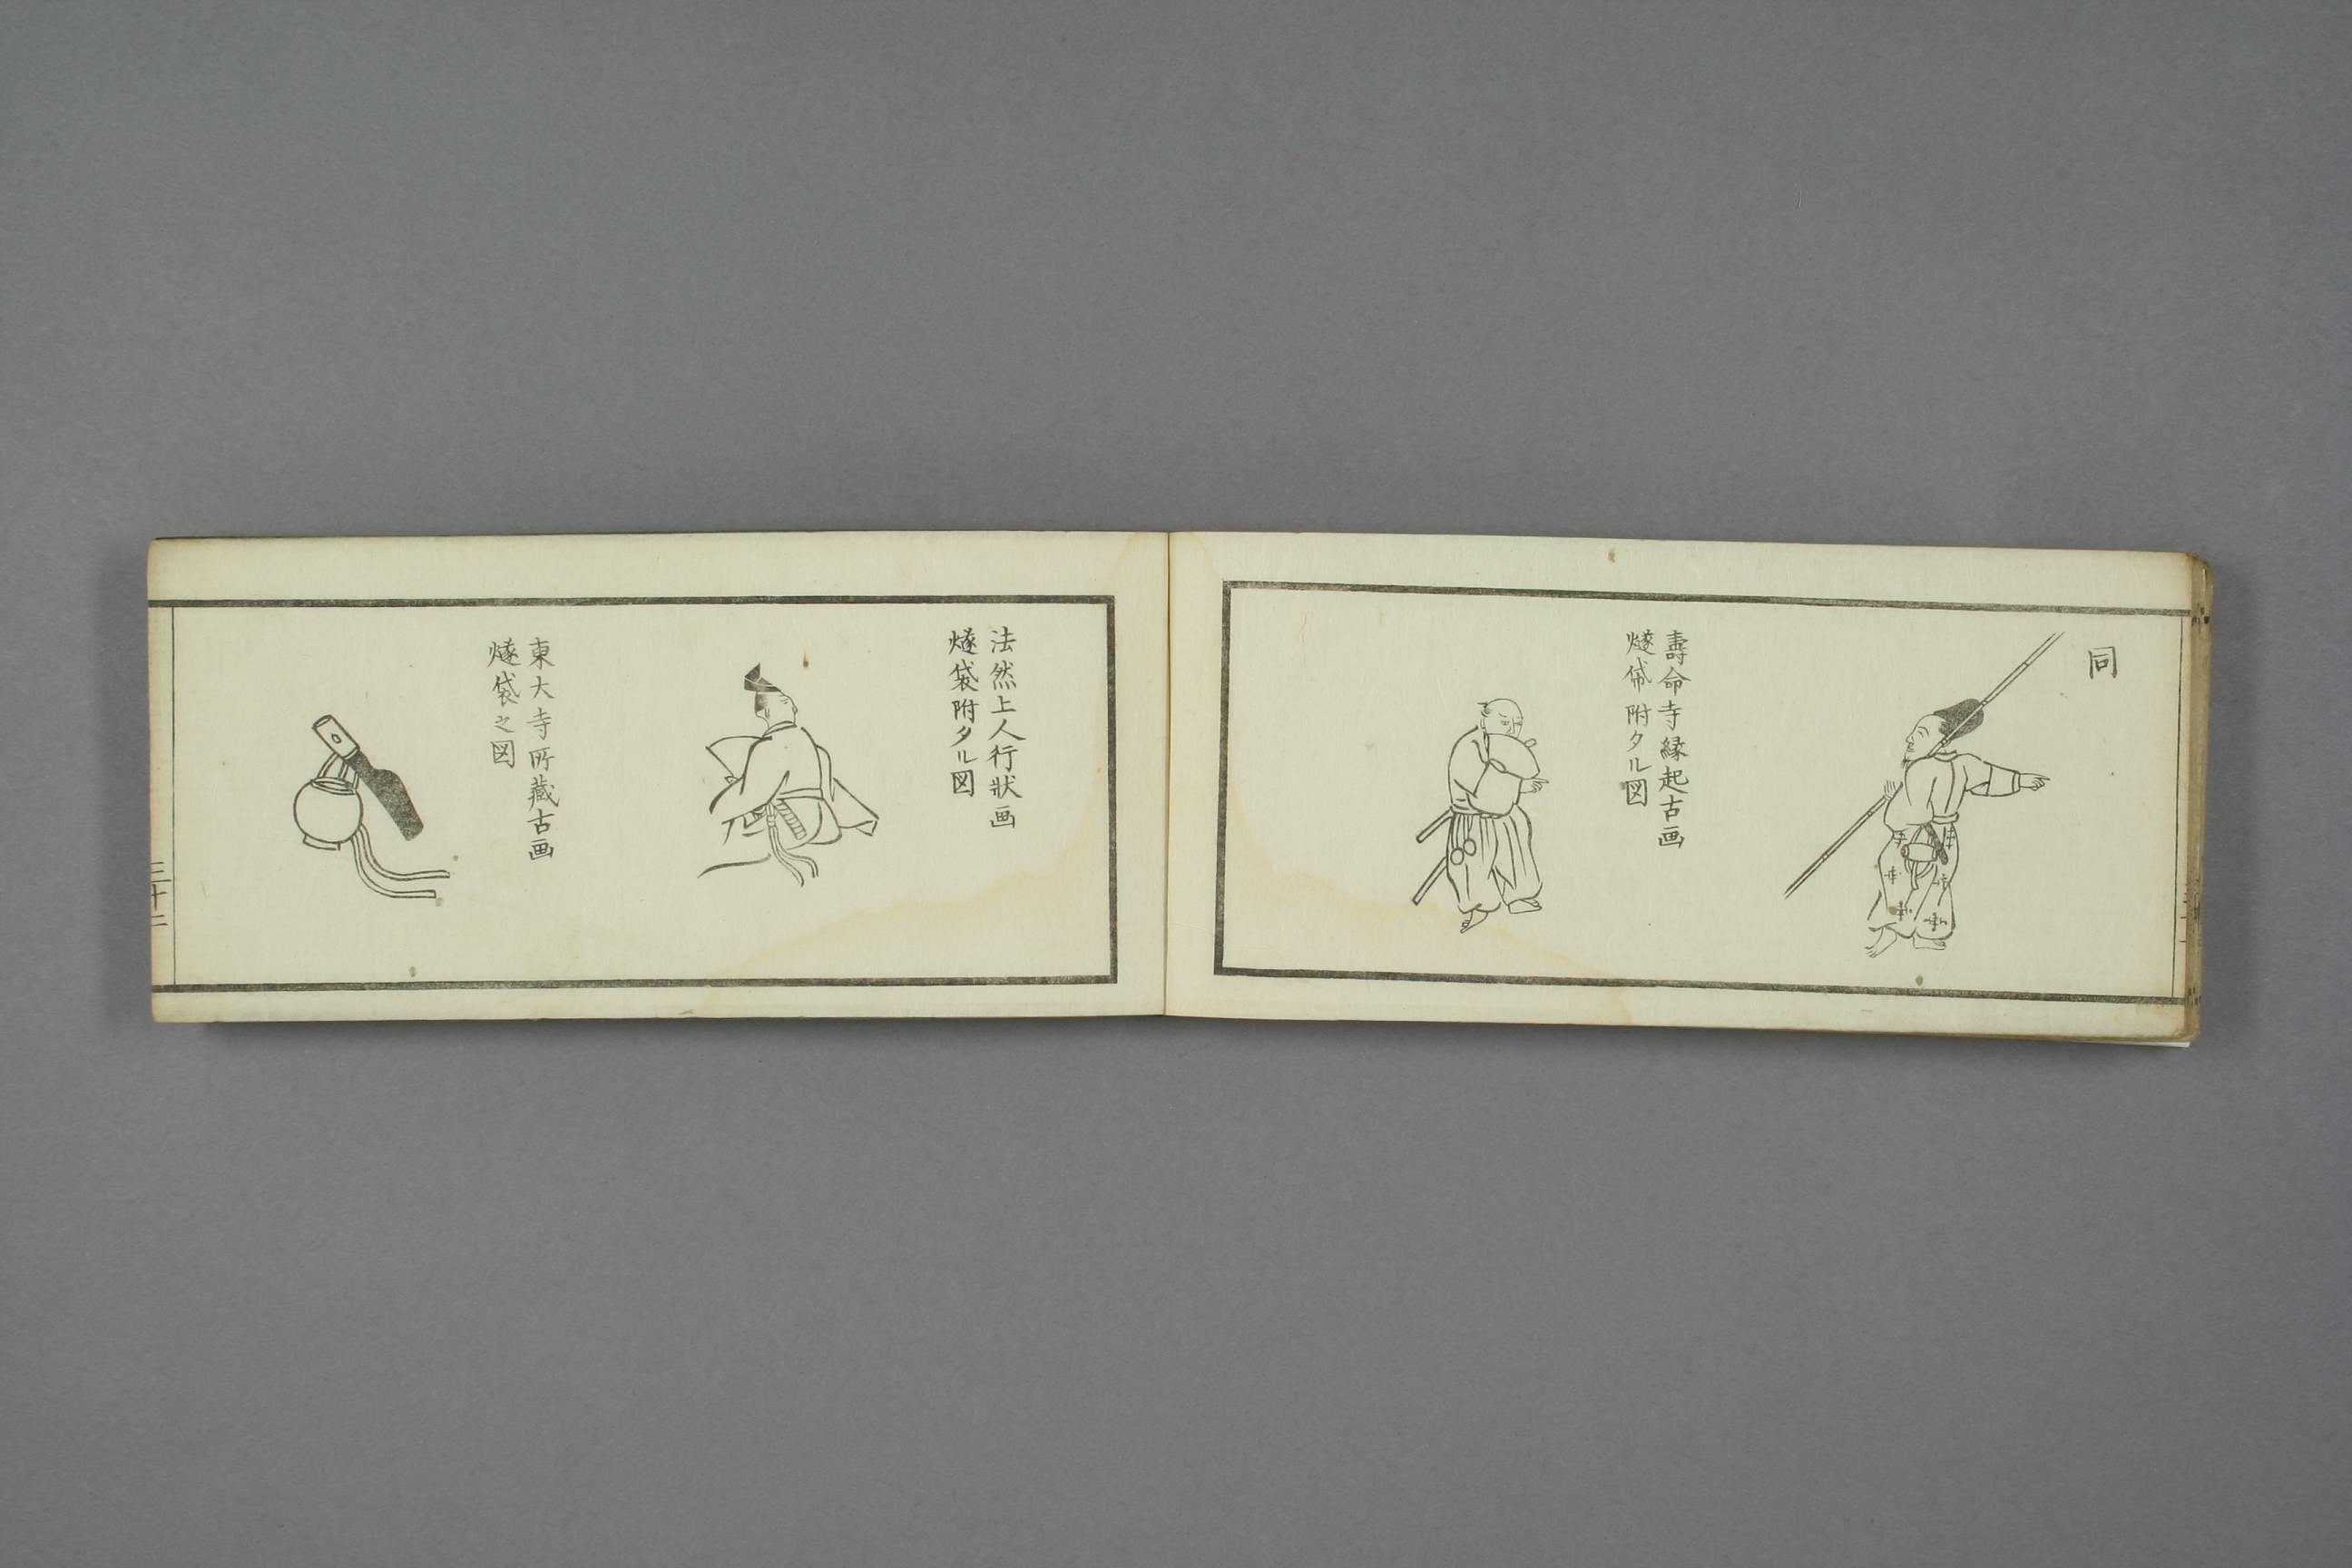 同
壽命寺縁起古画
燧帒附タル図
法然上人行狀画
燧袋附タル図
東大寺所藏古画
燧袋之図
三十二